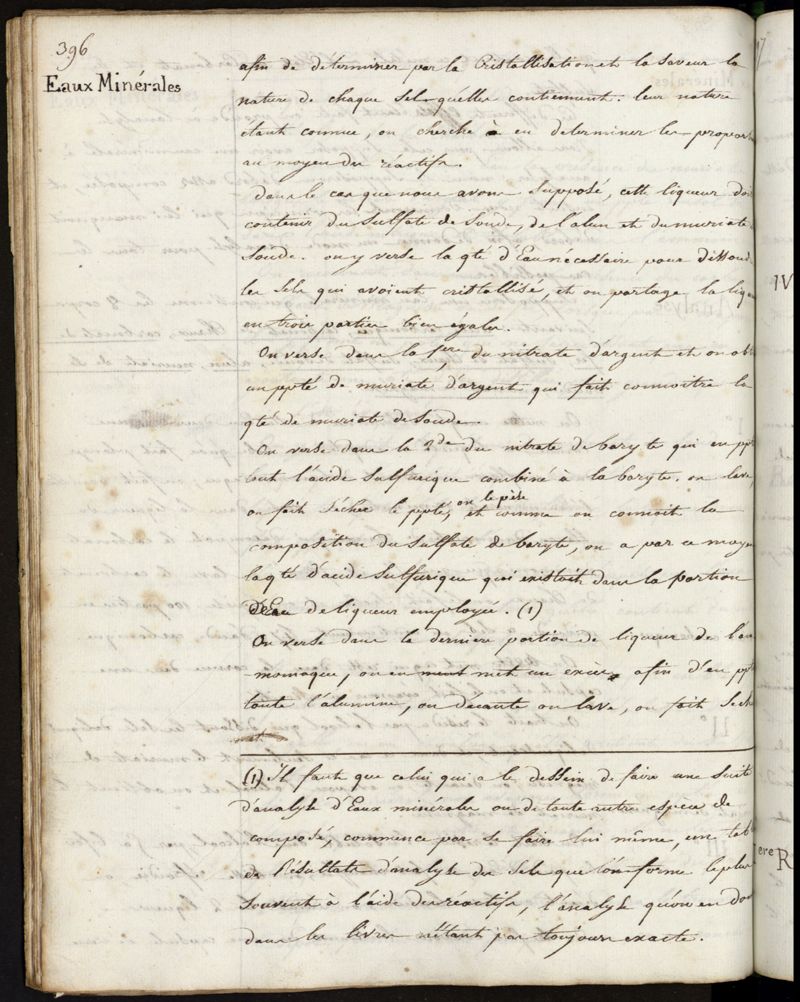 396
Eaux Minérales
afin de déterminer par la Cristallisation et la Saveur la
nature de chaque Sel qu'elles contiennent. leur nature
étant connue, on cherche à en déterminer les
au moyen des réactifs.
Dans le cas que nous avons Supposé, cette liqueur
contenir du Sulfate de Soude, de l'alun et du muriate
Soude. on y verse la qté d'Eau nécessaire pour
les Sels qui avoient cristallisé, et on partage la
en trois parties bien égales.
On verse dans la 1ere du nitrate d'argent et on
un ppté de muriate d'argent qui fait connoitre la
qté de muriate de Soude.
On verse dans la 2de du nitrate de baryte qui en
tout l'acide Sulfurique combiné à la baryte. on lave,
on fait Sécher le ppté, on le pèse et comme on connoit la
composition du Sulfate de baryte, on a par ce moyen
la qté d'acide Sulfurique qui existoit dans la portion
de liqueur employée. (1)
On verse dans la dernière portion de liqueur de l'am
moniaque, on en met un excès, afin d'en
toute l'alumine, on décante on lave, on fait
(1) Il faut que celui qui a le dessein de faire une
d'analyse d'Eaux minérales ou de toute autre espèce de
composé, commence par se faire lui même, un
de Résultats d'analyse des Sels que l'on forme le plus
Souvent à l'aide des réactifs, l'analyse qu'on en
dans les livres n'étant pas toujours exacte.
IV
ere R